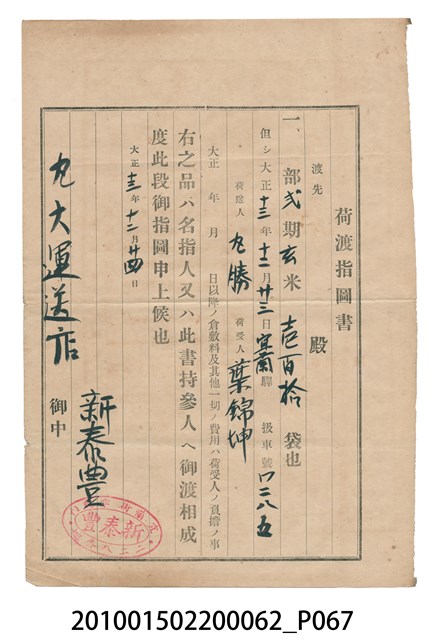 荷渡指圖書
渡先 殿
一、部弍期玄米壱百拾袋也
但シ大正十三年十二月廿三日 驛 扱車號ワ二八五
荷送人 丸勝 荷受人 葉錦坤
大正 年 月 日以降ノ倉敷料及其他一切ノ費用ハ荷受人ノ負擔ノ事
右之品ハ名指人又ハ此書持參人ヘ御渡相成
度此段御指圖申上候也
大正十三年十二月廿四日
新泰豊
丸大運送店 御中
新泰豊
201001502200062_P067